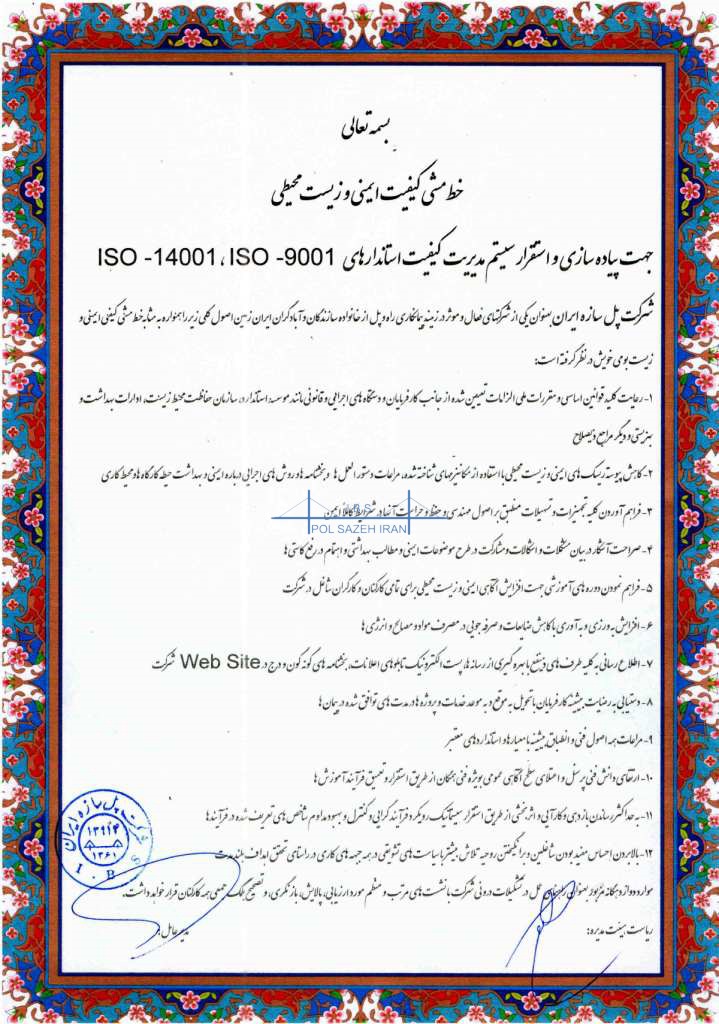 بسمه تعالی
خط مشی کیفیت ایمنی و زیست محیطی
جهت پیاده سازی و استقرار سیستم مدیریت کیفیت استاندارهای ISO -14001، ISO -9001
شرکت پل سازه ایران بعنوان یکی از شرکتهای فعال و موثر در زمینه پیمانکاری راه و پل از خانواده سازندگان و آبادگران ایران زمین اصول کلی زیر را همواره به مثابه خط مشی کیفی ایمنی و
زیست بومی خویش در نظر گرفته است:
۱- رعایت کلیه قوانین اساسی و مقررات ملی الزامات تعیین شده از جانب کارفرمایان و دستگاه های اجرایی و قانونی مانند موسسه استاندارد، سازمان حفاظت محیط زیست، ادارات بهداشت و
بهزیستی و دیگر مراجع ذیصلاح
۲- کاهش پیوسته ریسک های ایمنی و زیست محیطی با استفاده از مکانیزمهای شناخته شده، مراعات دستور العمل ها و بخشنامه ها و روش های اجرایی درباره ایمنی و بهداشت حیطه کارگاه ها و محیط کاری
۳- فراهم آوردن کلیه تجهیزات و تسهیلات منطبق بر اصول مهندسی و حفظ و حراست آنها در شرایط کاملا ایمن
I.B.S
POL SAZEH IRAN
۴- صراحت آشکار در بیان مشکلات و اشکالات و مشارکت در طرح موضوعات ایمنی و مطالب بهداشتی و اهتمام در رفع کاستی ها
۵- فراهم نمودن دوره های آموزشی جهت افزایش آگاهی ایمنی و زیست محیطی برای تمامی کارکنان و کارگران شاغل در شرکت
۶- افزایش بهره ورزی و به آوری با کاهش ضایعات و صرفه جویی در مصرف مواد و مصالح و انرژی ها
۷- اطلاع رسانی به کلیه طرف های ذینفع با بهره گیری از رسانه ها، پست الکترونیک تابلوهای اعلانات، بخشنامه های گونه گون و درج در Web Site شرکت
۸- دستیابی به رضایت بیشینه کارفرمایان با تحویل به موقع و به موعد خدمات و پروژه ها در مدت های توافق شده در پیمان ها
۹- مراعات همه اصول فنی و انطباق بیشینه با معیارها و استانداردهای معتبر
۱۰- ارتقای دانش فنی پرسنل و اعتلای سطح آگاهی عمومی بویژه فنی همگان از طریق استقرار و تعمیق فرآیند آموزش ها
۱۱- به حداکثر رساندن بازدهی و کارآیی و اثربخشی از طریق استقرار سیستماتیک رویکرد فرآیند گرایی و کنترل و بهبود مداوم شاخص های تعریف شده در فرآیندها
۱۲- بالا بردن احساس مفید بودن شاغلین و برانگیختن روحیه تلاش بیشتر با سیاست های تشویقی در همه جبهه های کاری در راستای تحقق اهداف بلند مدت
موارد دوازده گانه مزبور بعنوان راهنمای عمل در تشکیلات درونی شرکت با نشست های مرتب و منظم مورد ارزیابی، پالایش، بازنگری، و تصحیح ملک جمعی همه کارکنان قرار خواهد داشت.
ریاست هیئت مدیره:
مدیر عامل:
شرکت پل سازه ایران
۱۳۹۱۴
۱۳۶۱
I.B.S